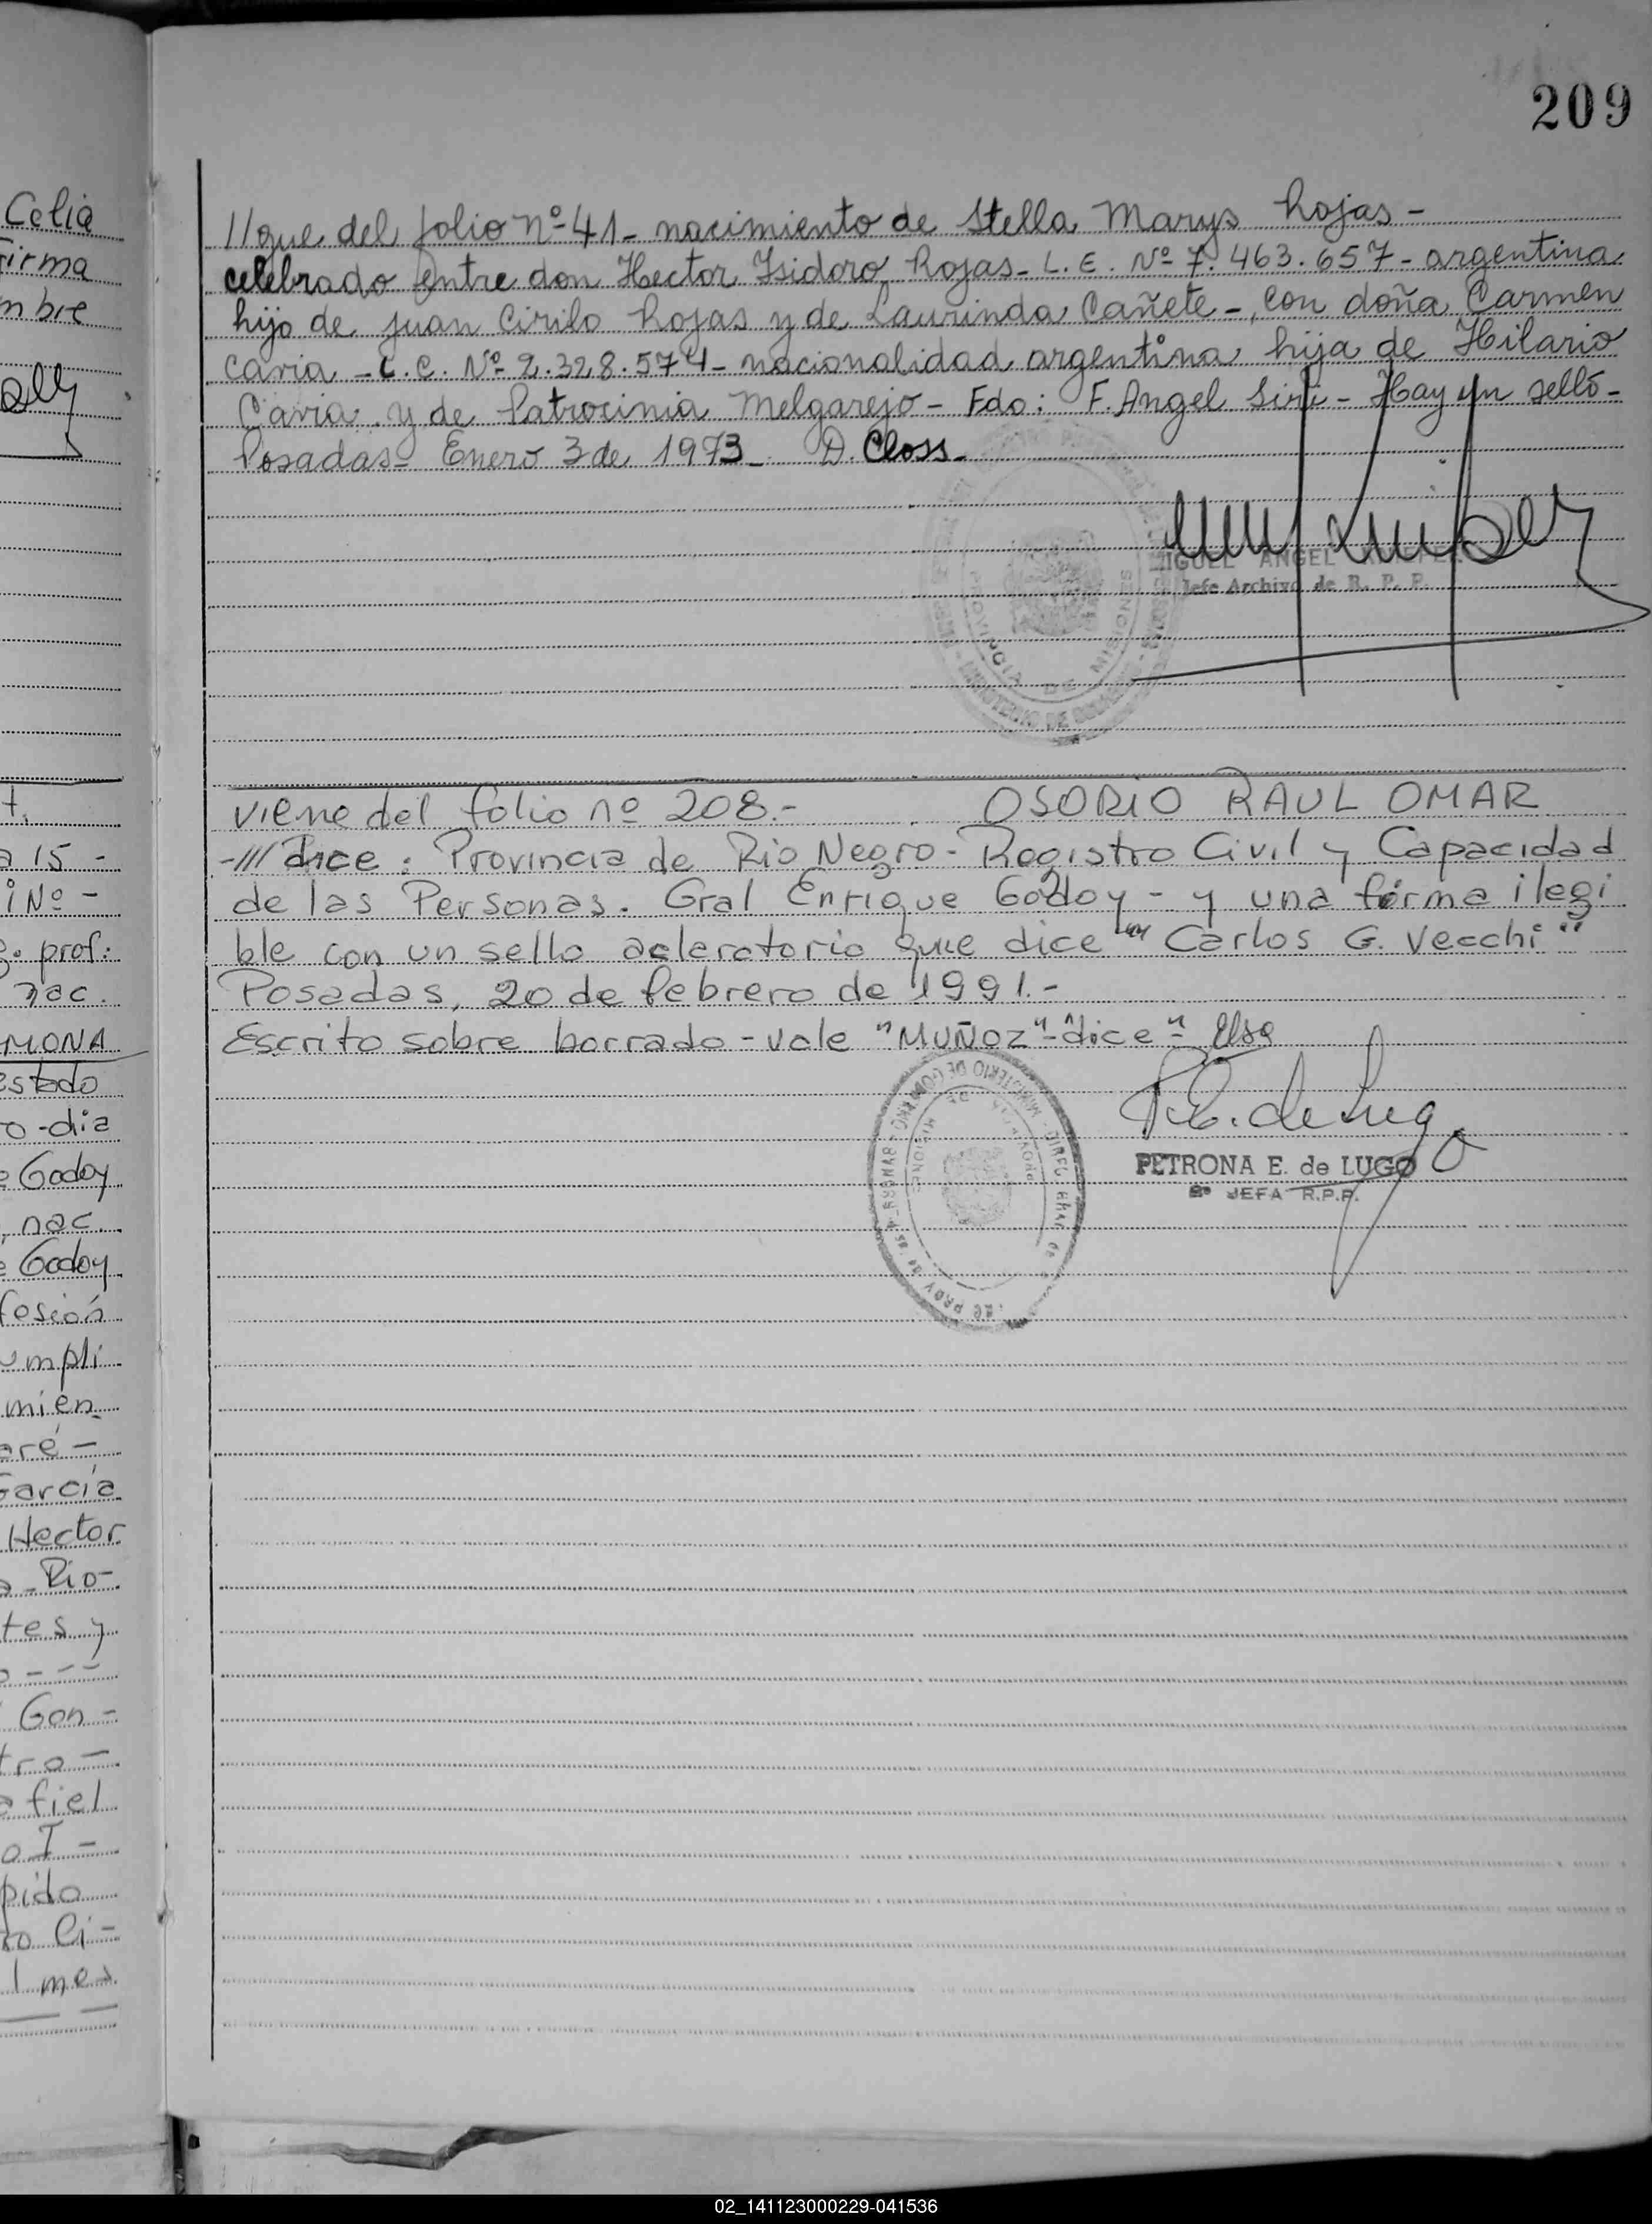 209
Celia
Firma
mbre
t.
a 15 -
i Nº -
g. prof:
nac.
MONA
estado
o - dia
e Godoy
, nac.
e Godoy
fesión
umpli
mien
aré -
García
Hector
a - Rio-
tes y
o - - -
Gon -
tro -
a fiel
o I -
pido
ro Ci -
l mes
//gue del folio nº 41 - nacimiento de Stella Marys Rojas -
celebrado entre don Hector Isidoro Rojas - L. E. Nº 7. 463. 657 - argentina
hijo de Juan Cirilo Rojas y de Laurinda Cañete -, con doña Carmen
Cavia - L. C. Nº 2. 328. 574 - nacionalidad argentina hija de Hilario
Cavia y de Patrocinia Melgarejo - Fdo: F. Angel Siri - Hay un sello -
Posadas - Enero 3 de 1973 - D. Closs -
MIGUEL ANGEL
Jefe Archivo de R. P. P.
PROVINCIA DE MISIONES
viene del folio nº 208.- OSORIO RAUL OMAR
-/// dice: Provincia de Rio Negro - Registro Civil y Capacidad
de las Personas. Gral Enrique Godoy - y una firma ilegi
ble con un sello aclaratorio que dice "" Carlos G. Vecchi ""
Posadas, 20 de febrero de 1991.-
Escrito sobre borrado - vale "MUÑOZ" - "dice" - Elsa
P. E. de Lugo
PETRONA E. de LUGO
2º JEFA R.P.P.
MINISTERIO DE GOBIERNO
02_141123000229-041536